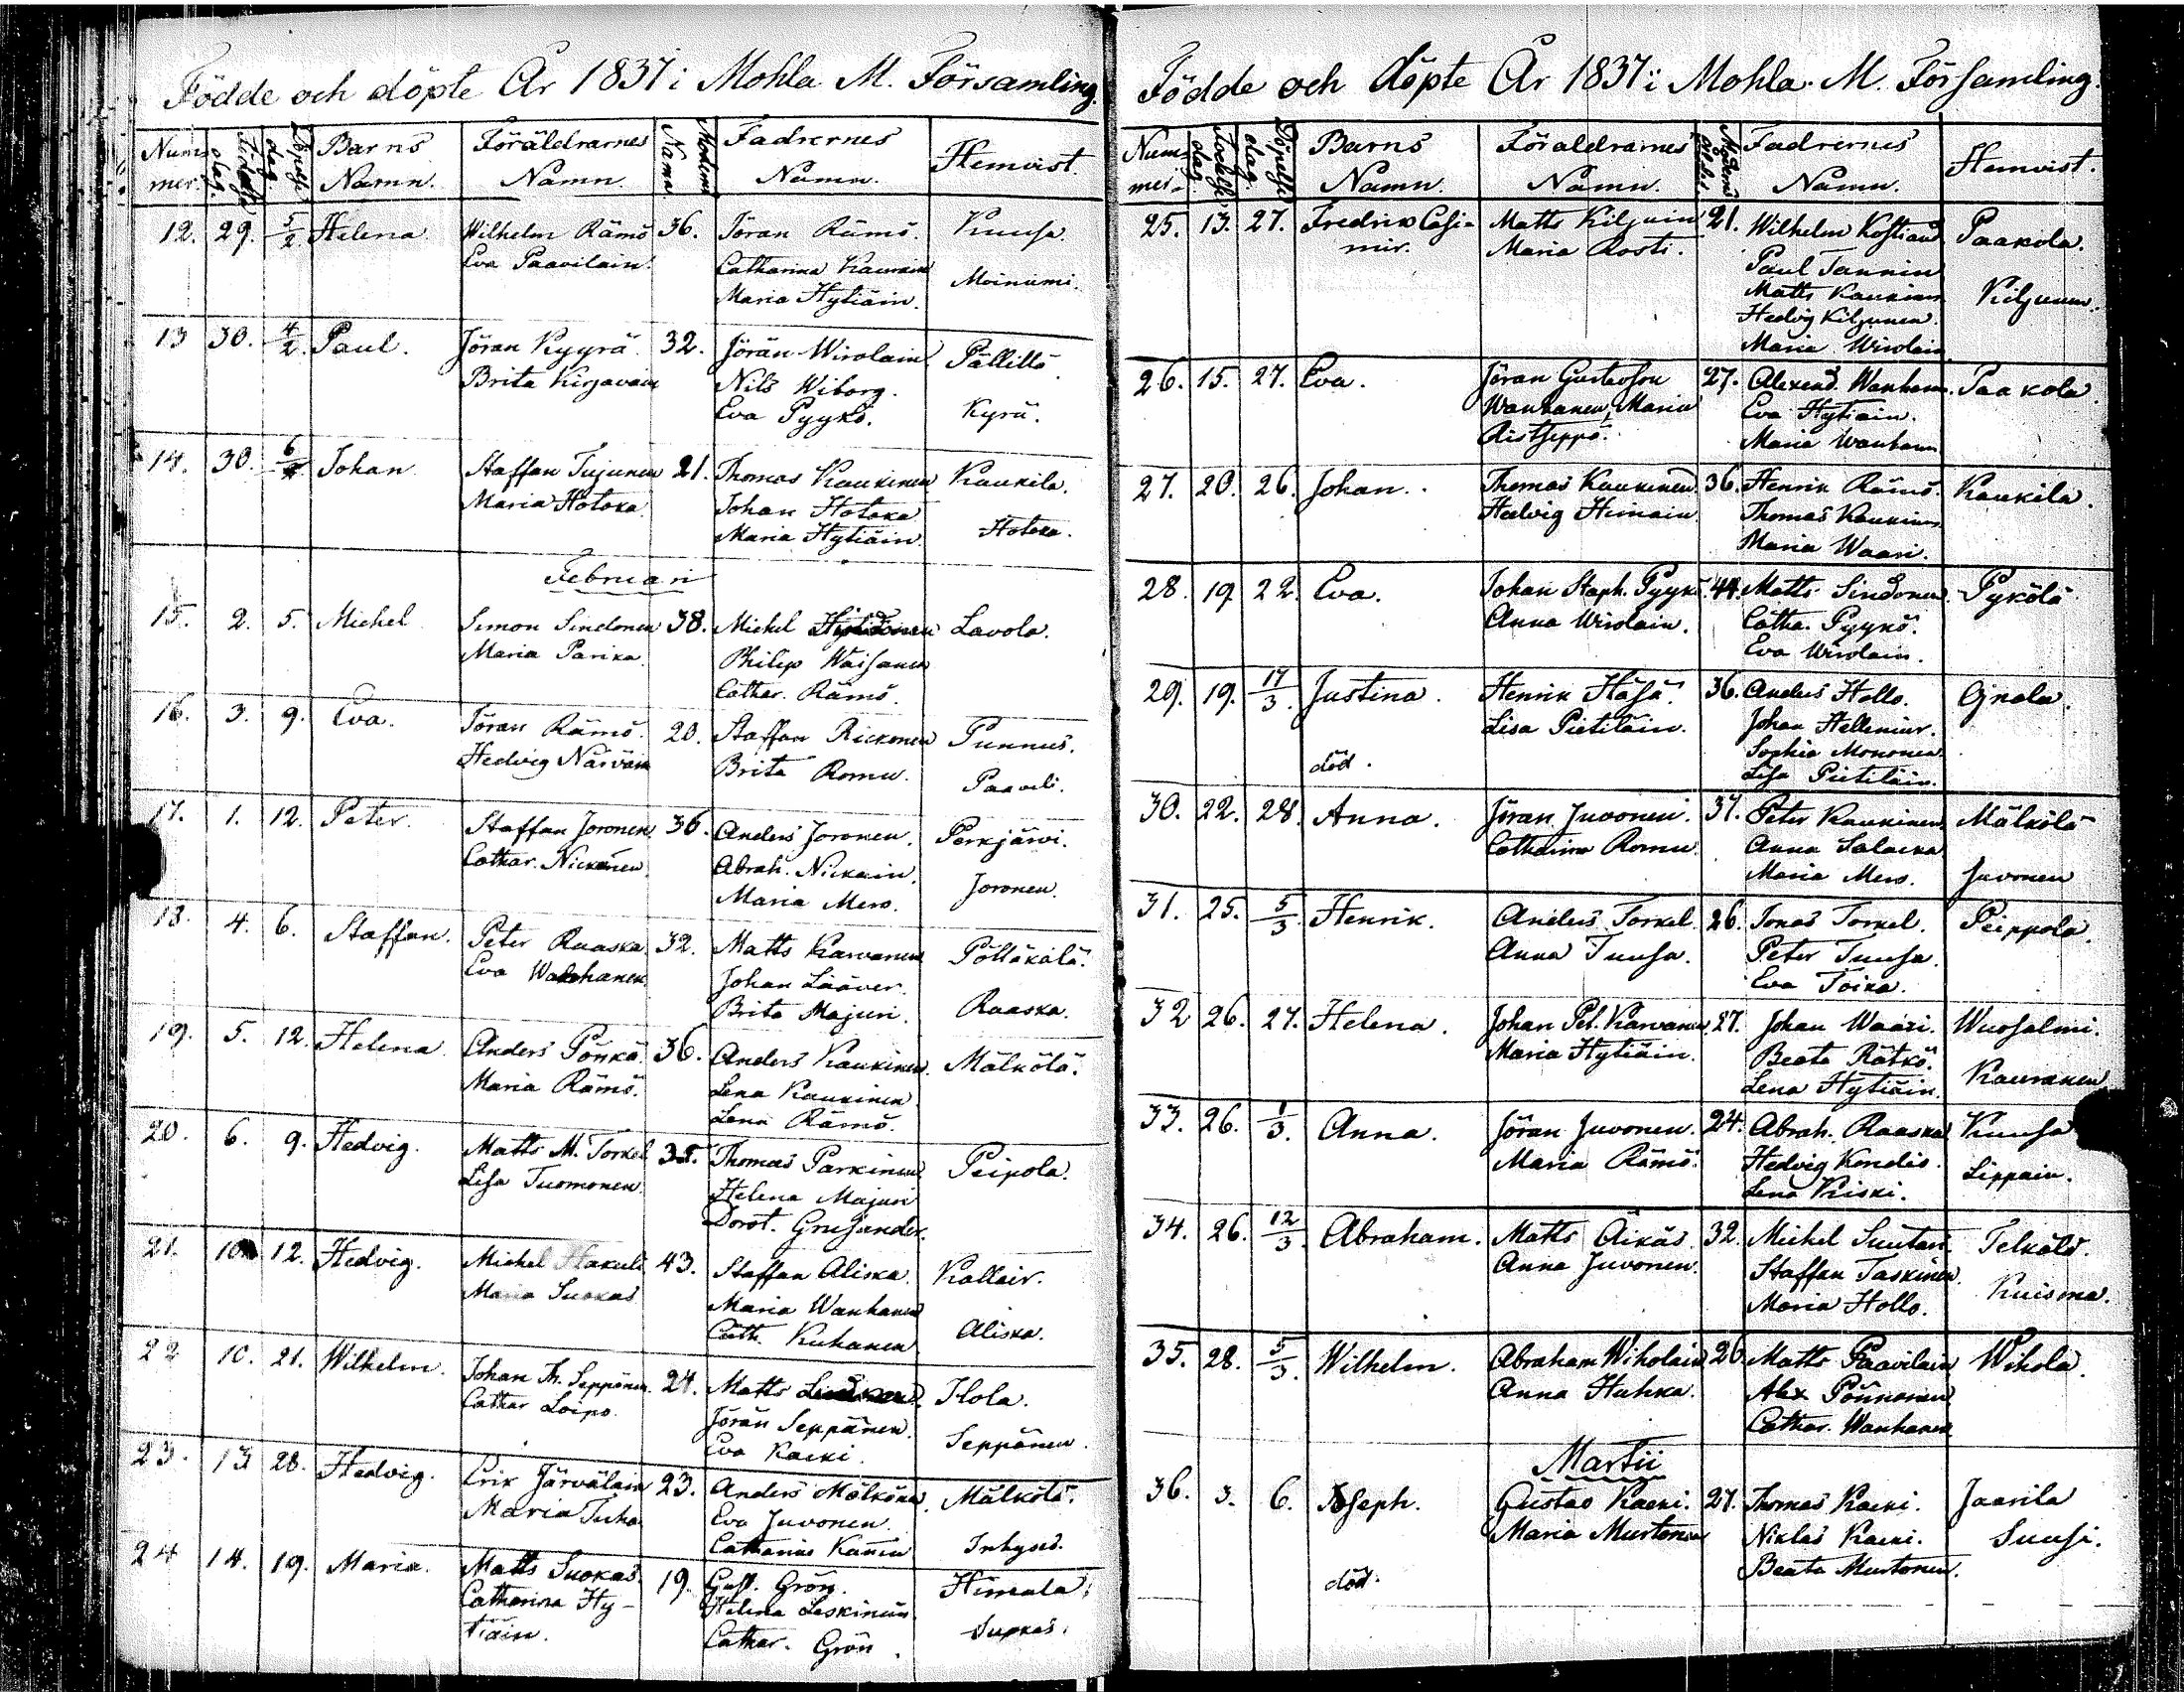 Födde och döpte År 1837 i Mohla M. Församling.
Nummer. Födelse dag. Döpelse dag. Barns Namn. Föräldrarnes Namn. Modrens Namn Fadrernes Namn. Hemvist.
12. 29. 5/2 Helena. Wilhelm Rämö 36. Jöran Rämö. Kuusa
Eva Paavilain. Catharina
Maria Hytiäin. Moinumi.
13 30. 4/2. Paul. Jöran Kyyrä. 32. Jörän Wirolain Pällillö
Brita Kirjavain Nils Wiborg.
Eva Pyykö. Kyrä.
14. 30. 6/2 Johan Staffan Tujunen 21. Thomas Kaukinen Kaukila.
Maria Hotoka. Johan Hotoka
Maria Hytiäin. Hotoka.
Februari
15. 2. 5. Michel Simon Sindonen 38. Michel Lavola.
Maria Parika. Philip Waisanen
Cathar. Rämö.
16. 3. 9. Eva. Jöran Rämö. 20. Staffan Rickonen Punnus.
Hedvig Närväin Brita Romu. Paavil.
17. 1. 12. Peter. Staffan Joronen 36. Anders Joronen. Perkjärvi.
Cathar. Nickanen. Abrah. Nickain.
Maria Mero. Joronen.
18. 4. 6. Staffan. Peter Raaska. 32. Matts Karvanen Pölläkälä.
Eva Johan Lääver.
Brita Majuri. Raaska.
19. 5. 12. Helena Anders Pönkä. 36. Anders Kaukinen. Mälkölä.
Maria Rämö. Lena Kaukinen.
Lena Rämö.
20. 6. 9. Hedvig. Matts M. Torkel 35. Thomas Parkinen Peipola.
Lisa Tuomonen. Helena Majuri
Dorot. Grusander.
21. 10 12. Hedvig. Michel Hakuli 43. Staffan Aliska. Kallair.
Maria Suokas Maria Wanhanen
Cath. Kuhanen Aliska.
22 10. 21. Wilhelm. Johan Th. Seppänen. 24. Matts Ilola.
Cathar Loipo. Jörän Seppänen.
Eva Kaeki. Seppänen.
23. 13 28. Hedvig. Erik Järväläin 23. Anders Mälkönen. Mälkölä.
Maria Tuha Eva Juvonen.
Catharina Inhyses.
24 14. 19. Maria. Matts Suokas. 19. Gust. Grön. Himala.
Catharina Hy- Helena Leskinen
tiäin. Cathar. Grön. Suokas.
Födde och döpte År 1837 i Mohla M. Församling.
Nummer. Födelse dag. Döpelse dag. Barns Namn. Föräldrarnes Namn. Modrens ålder. Fadrernes Namn. Hemvist.
25. 13. 27. Fredrik Casi- Matts Kiljuin 21. Wilhelm Kostiand Paakola.
mir. Maria Rosti. Paul Tannin
Matts Kaukinen Kiljunen.
Hedvig Kiljunen.
Maria Wirolain
26. 15. 27. Eva. Jöran Gustafson 27. Alexand. Wanhanen. Paakola.
Wanhanen, Maria Eva Hytiäin.
Ristseppä. Maria Wanhanen
27. 20. 26. Johan. Thomas Kaukinen. 36. Henrik Rämö. Kaukila.
Hedvig Himain. Thomas Kaukinen.
Maria Waari.
28. 19. 22. Eva. Johan Staph. Pyykö. 44. Matts Sindonen. Pykölä.
Anna Wirolain. Catha. Pyykö.
Eva Wirolain.
29. 19. 17/3 Justina. Henrik Häsä. 36. Anders Hollo. Ojnala.
Lisa Pietiläin. Johan Helleniur.
död. Sophia Mononen.
Lisa Pietiläin.
30. 22. 28. Anna. Jöran Juvonen. 37. Peter Kaukinen Mälkölä
Catharina Romu. Anna Salacka.
Maria Mero. Juvonen
31. 25. 5/3 Henrik. Anders Torkel. 26. Jonas Torkel. Peippola.
Anna Tuusa. Peter Tuusa.
Eva Toika.
32 26. 27. Helena. Johan Pet. Karvanen 27. Johan Waari. Wuosalmi.
Maria Hytiäin. Beata Rätkö.
Lena Hytiäin. Kauranen
33. 26. 1/3. Anna. Jöran Juvonen. 24. Abrah. Raaska Kuusa
Maria Rämö. Hedvig Kondis. Lippain.
Lena Kiski.
34. 26. 12/3 Abraham. Matts Äikäs. 32. Michel Suutari. Telkälä.
Anna Juvonen. Staffan Taskinen. Kuisma.
Maria Hollo.
35. 28. 5/3. Wilhelm. Abraham Wiholain 26 Matts Paavilain Wihola.
Anna Huhka. Alex Pönnonen
Cathar. Wanhanen
Martii
36. 3. 6. Joseph. Gustav Kaeki. 27. Thomas Kaeki. Jaarila
Maria Murtonen Niklas Kaeki. Suusi.
död. Beata Murtonen.